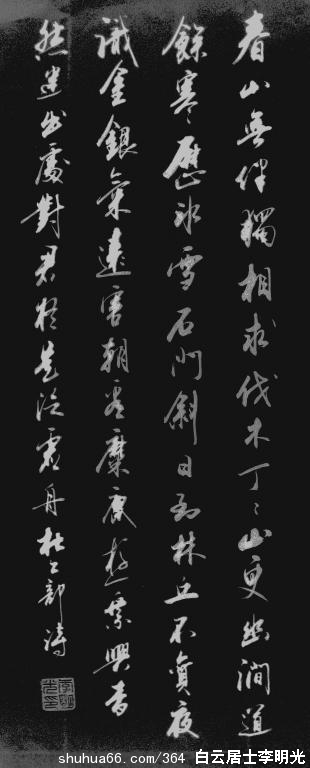 春山無伴獨相求伐木丁丁山更幽澗道
餘寒歷冰雪石門斜日到林丘不貪夜
識金銀氣遠害朝看麋鹿遊乘興杳
然迷出處對君疑是泛虛舟杜工部詩
shuhua66.com/364 白云居士李明光